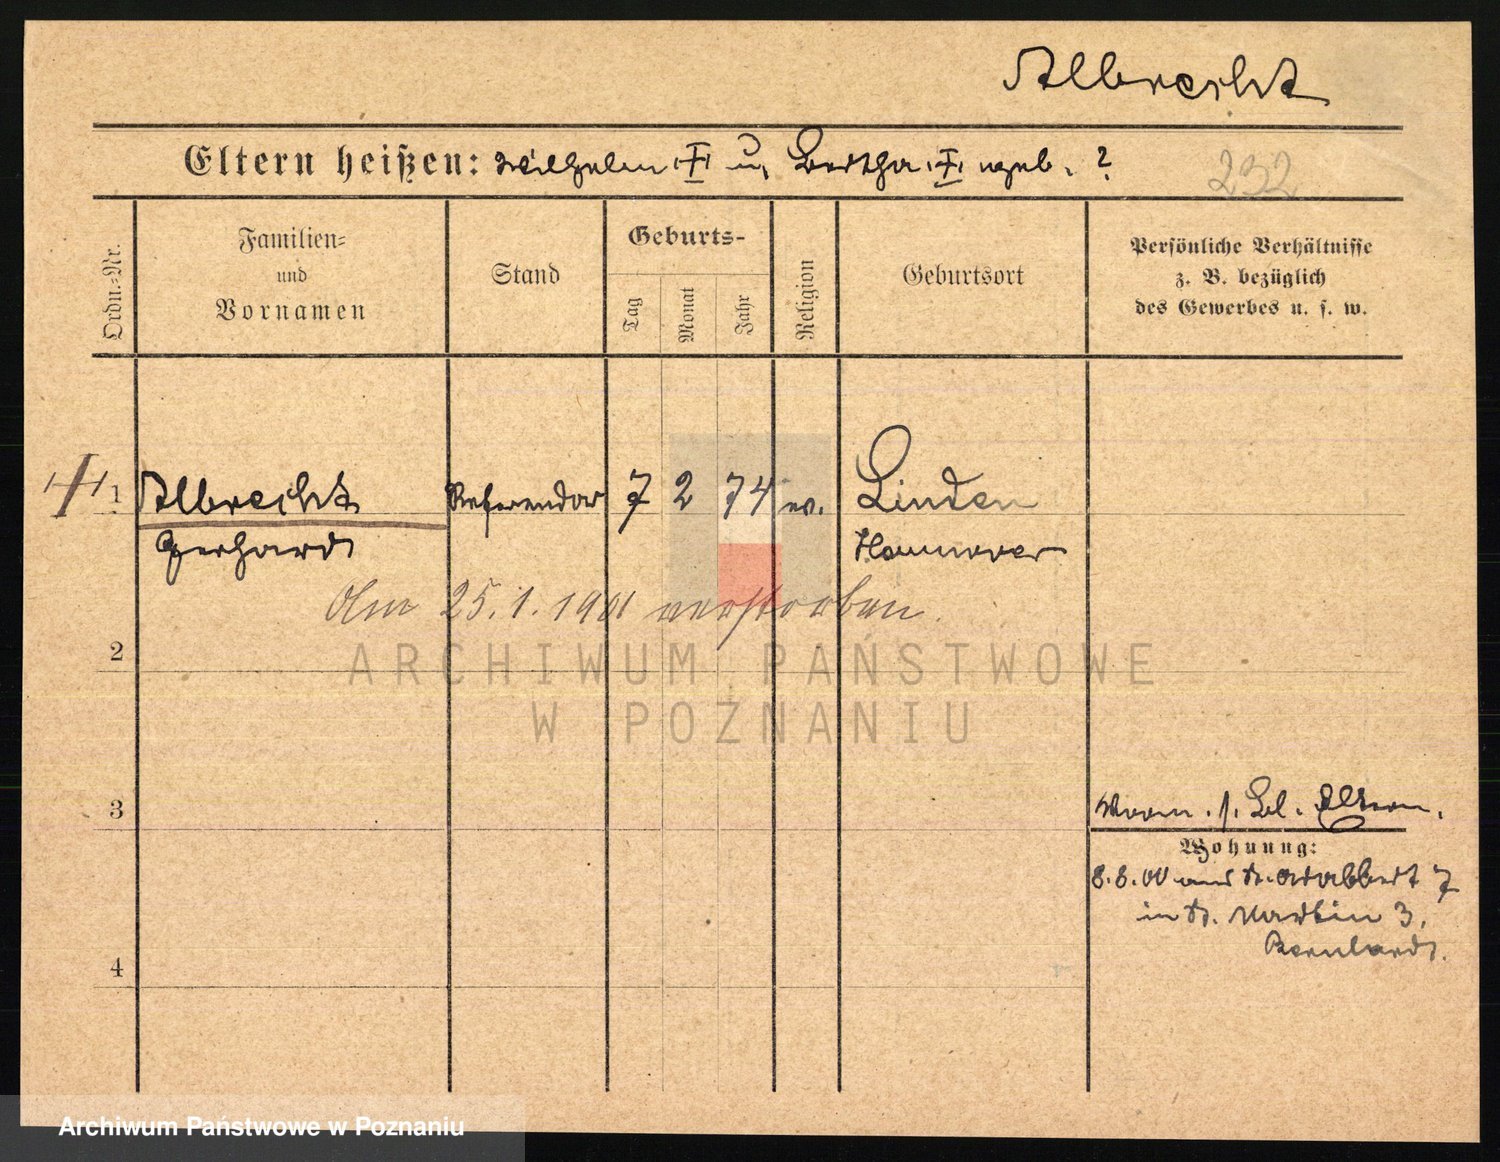 Albrecht
Eltern heißen: Wilhelm † u. Bertha † geb. ?
232
Ordn.-Nr.
Familien-
und
Vornamen
Stand
Geburts-
Tag
Monat
Jahr
Religion
Geburtsort
Persönliche Verhältnisse
z. B. bezüglich
des Gewerbes u. s. w.
† 1 Albrecht Referendar 7 2 74 ev. Linden
Gerhard Hannover
Am 25.1.1901 verstorben.
2
ARCHIWUM PAŃSTWOWE
W POZNANIU
3
Bl. Eltern.
Wohnung:
8.8.00 aus St. Adalbert 7
in St. Martin 3,
Bernhardt.
4
Archiwum Państwowe w Poznaniu